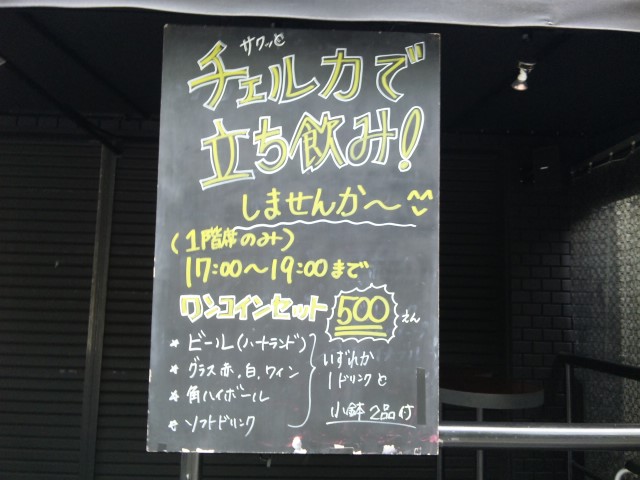 サクッと
チェルカで
立ち飲み!
しませんか〜
(1階席のみ)
17:00〜19:00まで
ワンコインセット 500えん
* ビール(ハートランド)
* グラス赤、白、ワイン
* 角ハイボール
* ソフトドリンク
いずれか
1ドリンクと
小鉢2品付